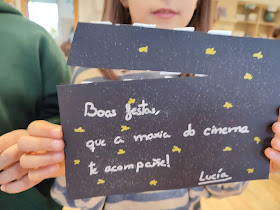 Boas festas,
que a maxia do cinema
te acompañe!
Lucía